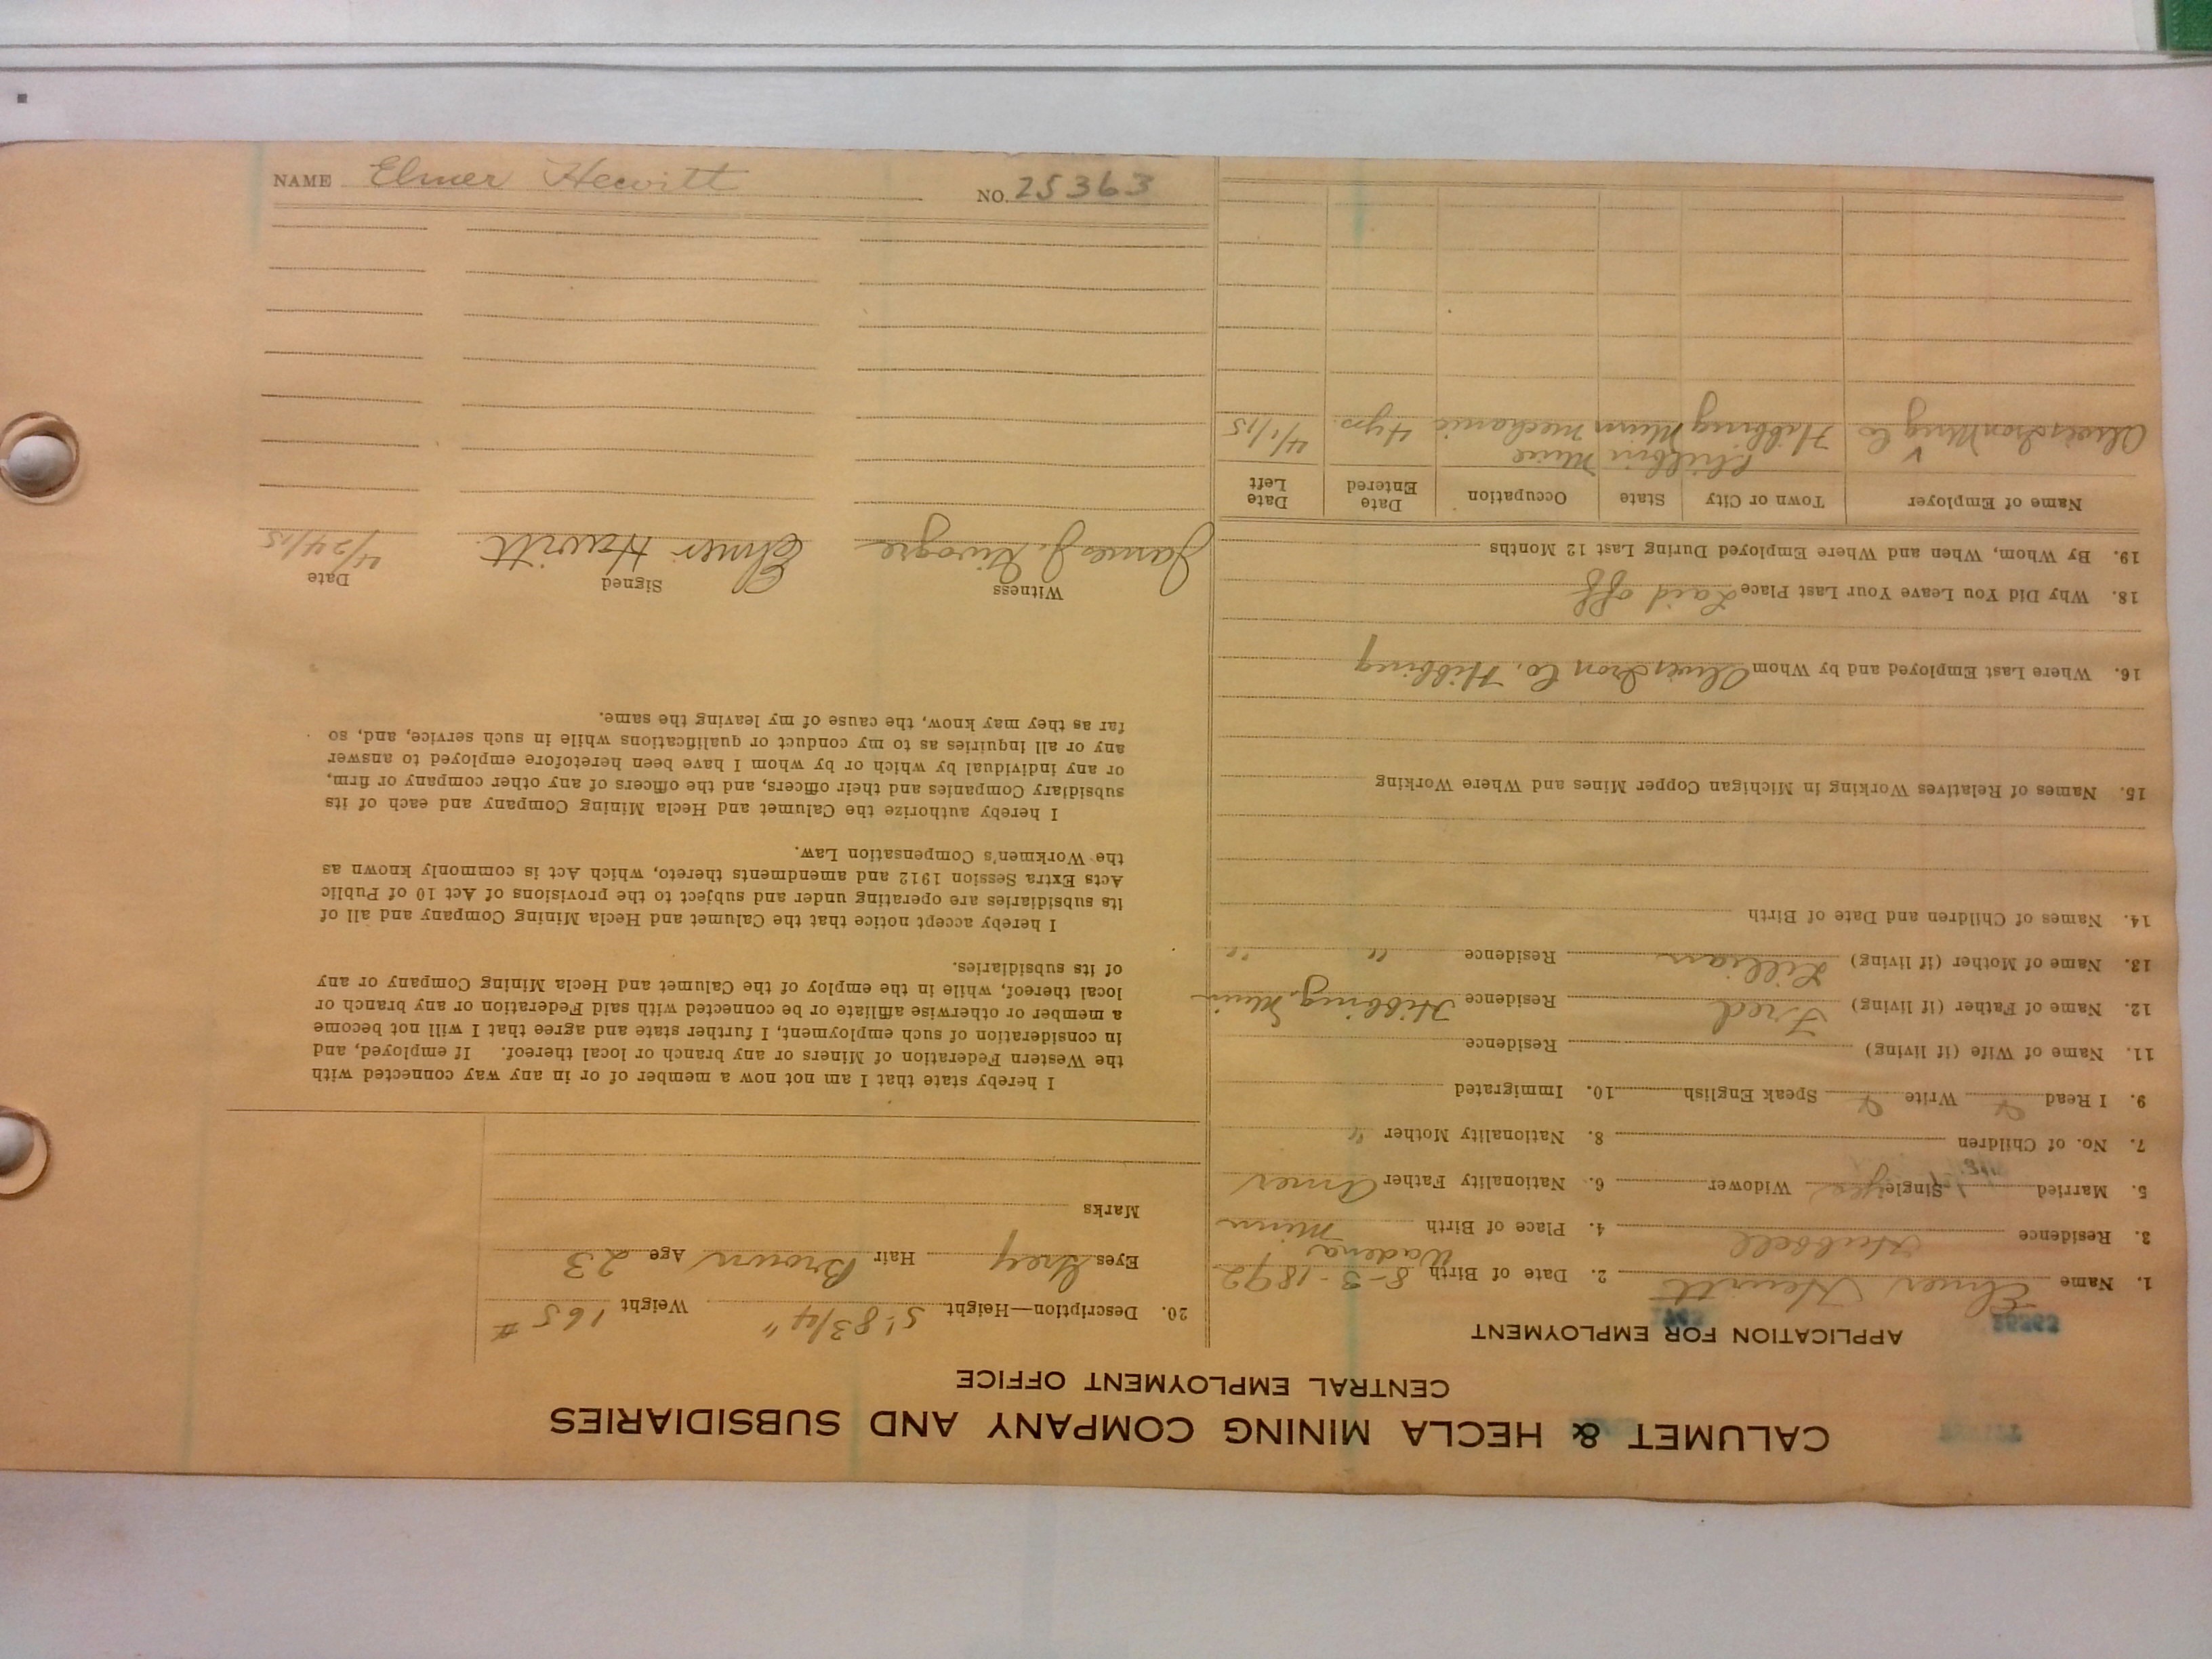 CALUMET & HECLA MINING COMPANY AND SUBSIDIARIES
CENTRAL EMPLOYMENT OFFICE
APPLICATION FOR EMPLOYMENT
1. Name Elmer Hewitt 2. Date of Birth 8-3-1892
3. Residence Hubbell 4. Place of Birth Wadena Minn
5. Married Single yes Widower 6. Nationality Father Amer
7. No. of Children 8. Nationality Mother "
9. I Read Write Speak English 10. Immigrated
11. Name of Wife (if living) Residence
12. Name of Father (if living) Fred Residence Hibbing, Minn
13. Name of Mother (if living) Lillian Residence " "
14. Names of Children and Date of Birth
15. Names of Relatives Working in Michigan Copper Mines and Where Working
16. Where Last Employed and by Whom Oliver Iron Co. Hibbing
18. Why Did You Leave Your Last Place Laid off
19. By Whom, When and Where Employed During Last 12 Months
Name of Employer Town or City State Occupation Date Entered Date Left
Oliver Iron Mng Co Hibbing Minn Mechanic 4 yrs. 4/1/15
20. Description—Height 5' 8 3/4" Weight 165 #
Eyes Grey Hair Brown Age 23
Marks
I hereby state that I am not now a member of or in any way connected with
the Western Federation of Miners or any branch or local thereof. If employed, and
in consideration of such employment, I further state and agree that I will not become
a member or otherwise affiliate or be connected with said Federation or any branch or
local thereof, while in the employ of the Calumet and Hecla Mining Company or any
of its subsidiaries.
I hereby accept notice that the Calumet and Hecla Mining Company and all of
its subsidiaries are operating under and subject to the provisions of Act 10 of Public
Acts Extra Session 1912 and amendments thereto, which Act is commonly known as
the Workmen's Compensation Law.
I hereby authorize the Calumet and Hecla Mining Company and each of its
subsidiary Companies and their officers, and the officers of any other company or firm,
or any individual by which or by whom I have been heretofore employed to answer
any or all inquiries as to my conduct or qualifications while in such service, and, so
far as they may know, the cause of my leaving the same.
Witness Signed Date
James J. Elmer Hewitt 4/24/15
NAME Elmer Hewitt NO. 25363